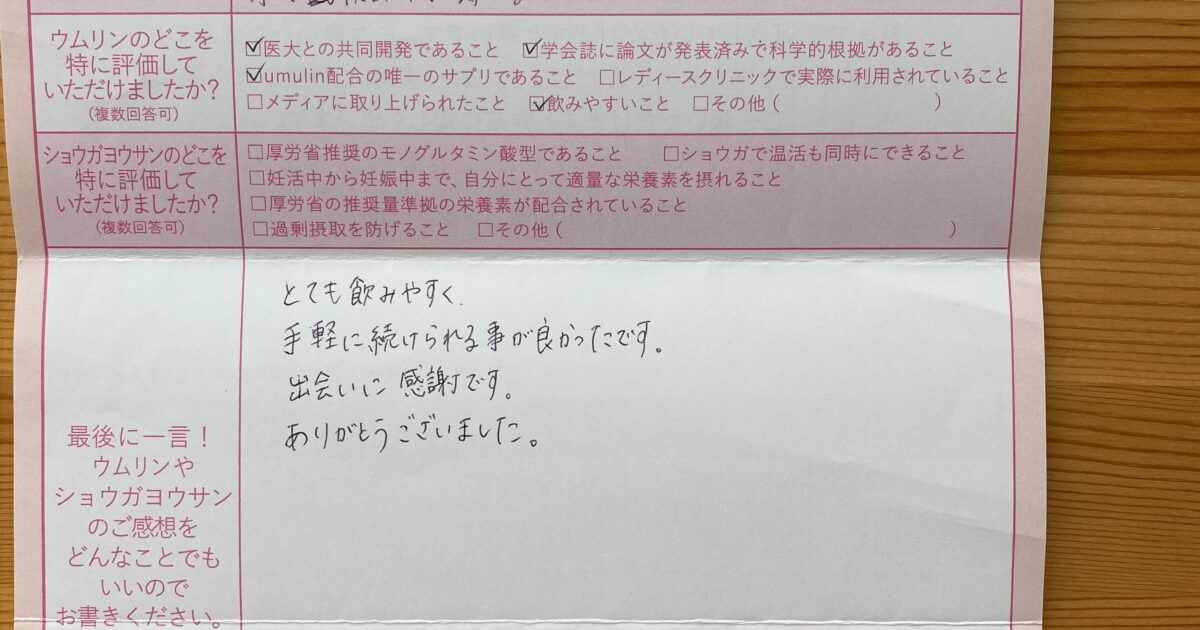 ウムリンのどこを
特に評価して
いただけましたか?
(複数回答可)
☑医大との共同開発であること ☑学会誌に論文が発表済みで科学的根拠があること
☑umulin配合の唯一のサプリであること □レディースクリニックで実際に利用されていること
□メディアに取り上げられたこと ☑飲みやすいこと □その他( )
ショウガヨウサンのどこを
特に評価して
いただけましたか?
(複数回答可)
□厚労省推奨のモノグルタミン酸型であること □ショウガで温活も同時にできること
□妊活中から妊娠中まで、自分にとって適量な栄養素を摂れること
□厚労省の推奨量準拠の栄養素が配合されていること
□過剰摂取を防げること □その他( )
最後に一言!
ウムリンや
ショウガヨウサン
のご感想を
どんなことでも
いいので
お書きください。
とても飲みやすく、
手軽に続けられる事が良かったです。
出会いに感謝です。
ありがとうございました。